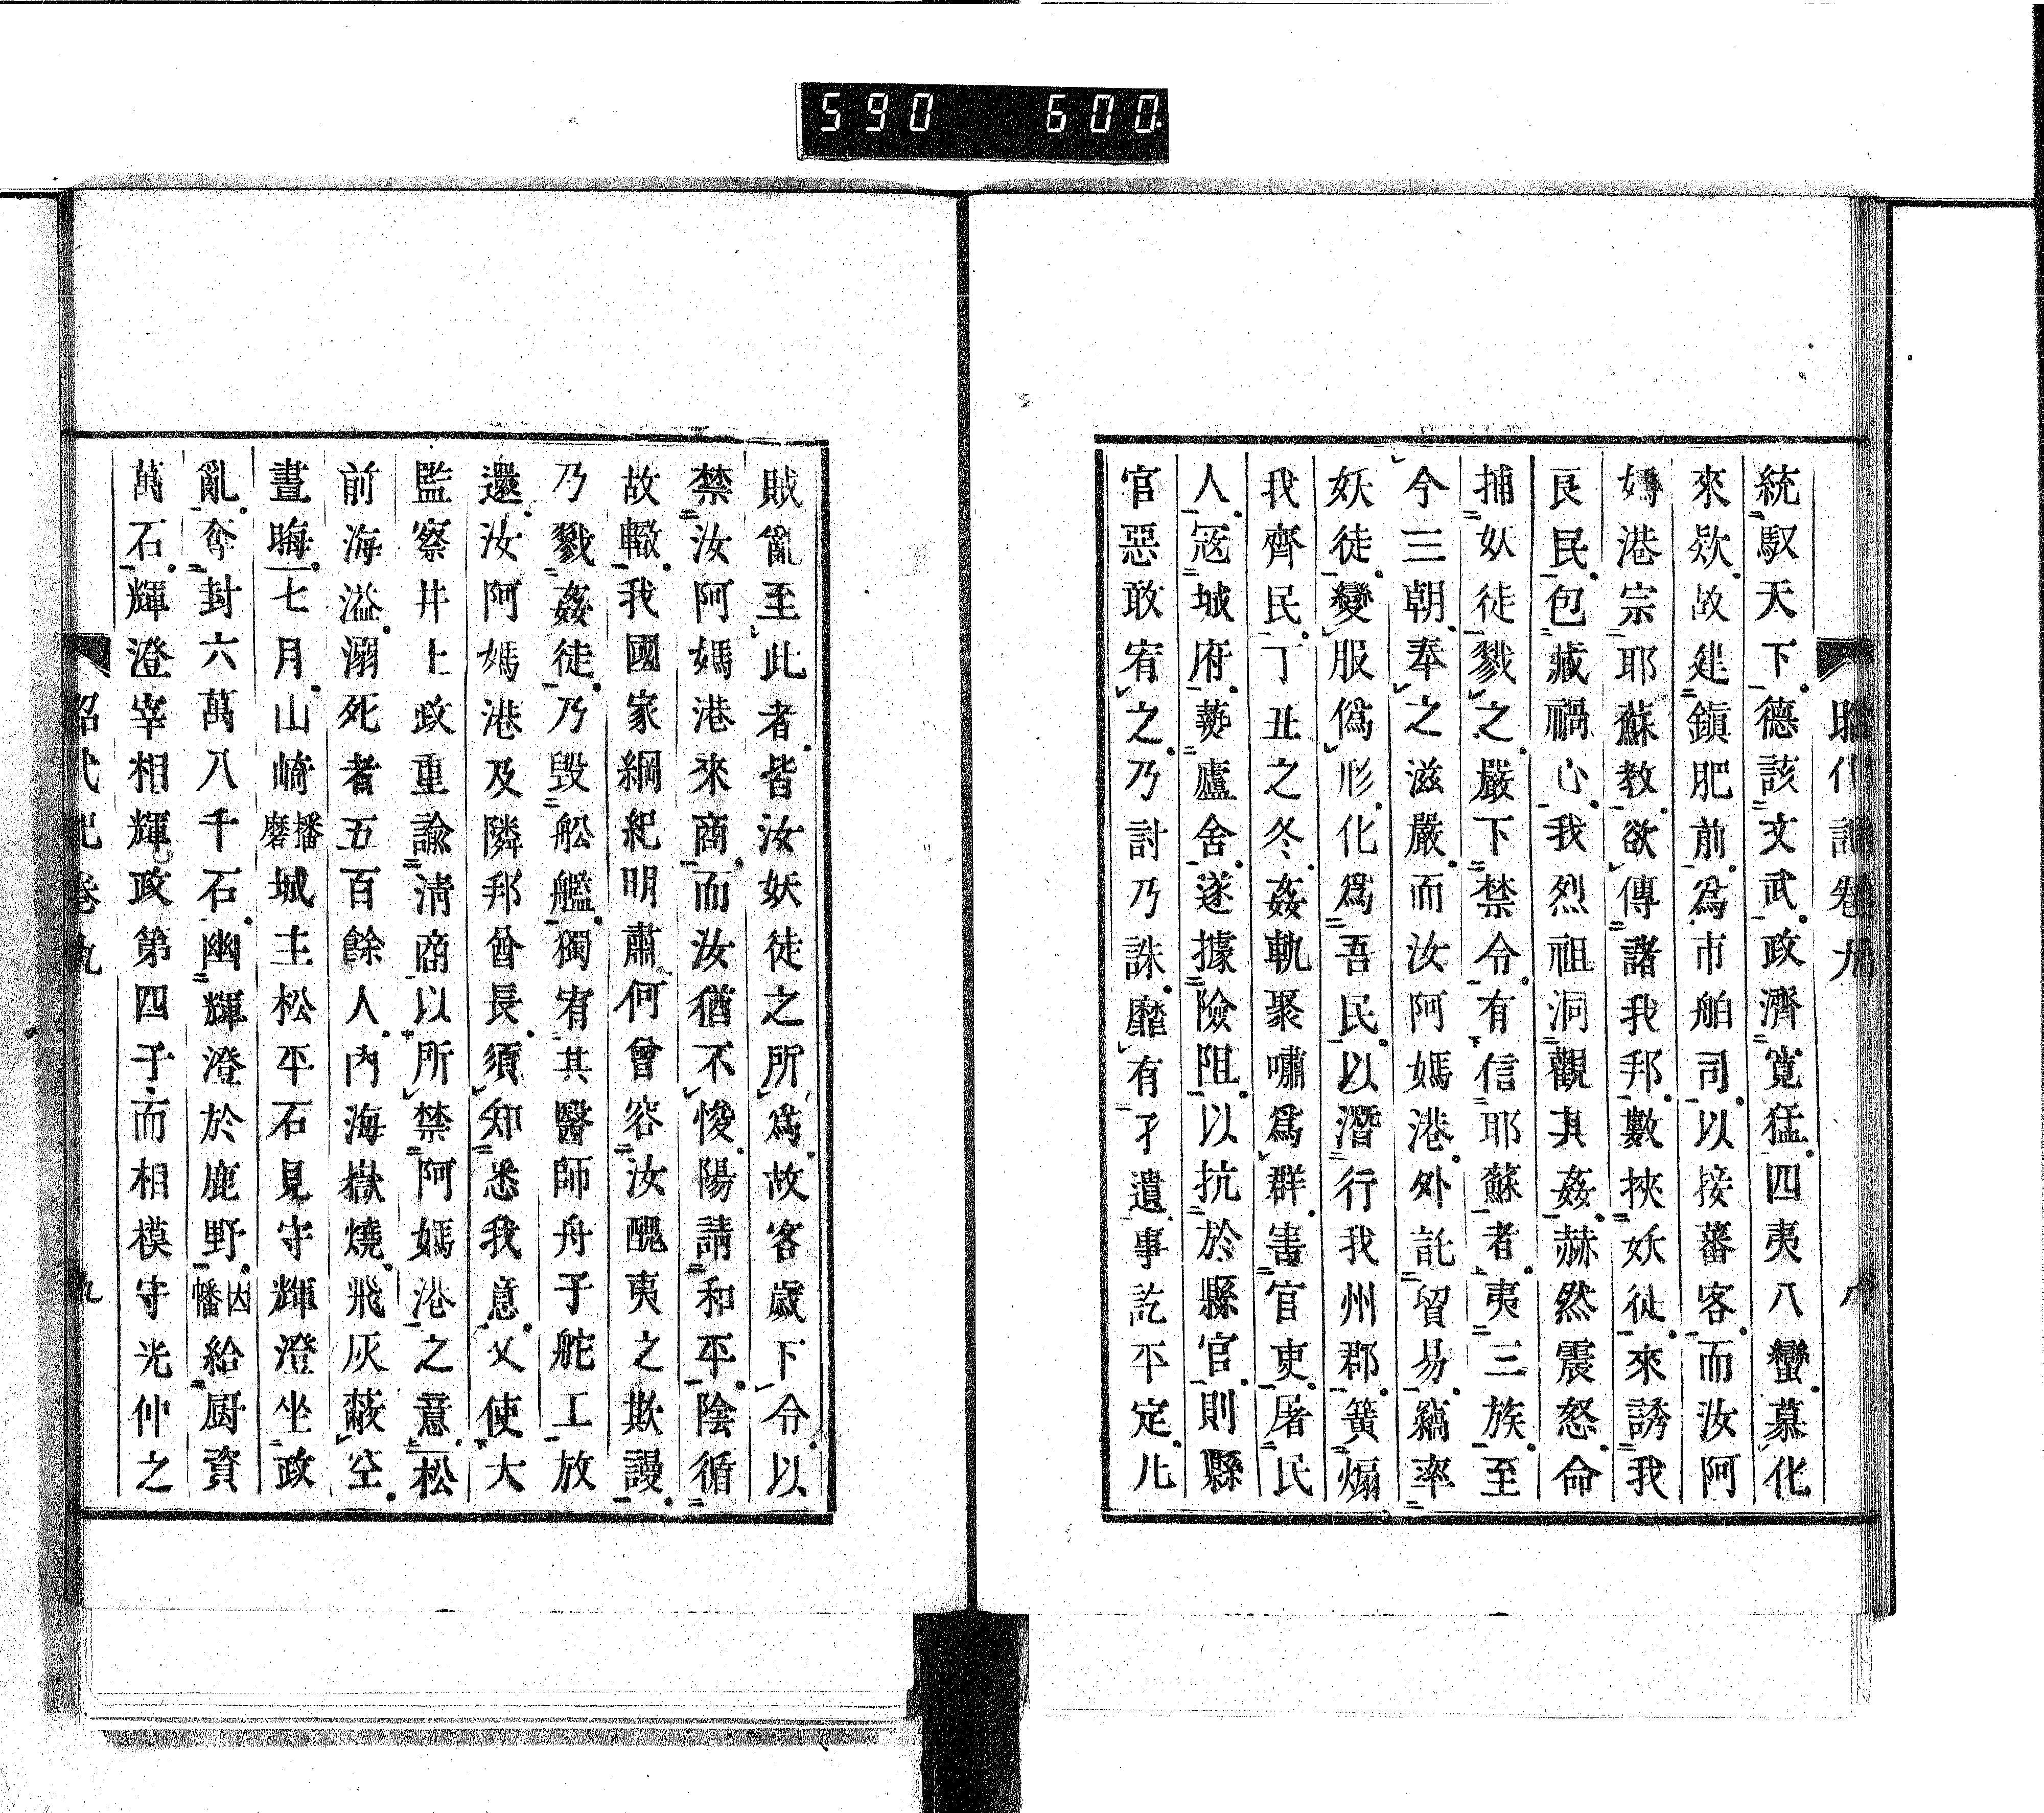 590 600
統馭天下。德該文武。政濟寬猛。四夷八蠻。慕化
來欵。故建鎭肥前。爲市舶司。以接蕃客。而汝阿
媽港宗耶蘇教。欲傳諸我邦。數挾妖徒。來誘我
良民。包藏禍心。我烈祖洞觀其姦。赫然震怒。命
捕妖徒戮之。嚴下禁令。有信耶蘇者。夷三族。至
今三朝。奉之滋嚴。而汝阿媽港。外託貿易。竊率
妖徒。變服爲形。化爲吾民。以潛行我州郡。簧煽
我齊民。丁丑之冬。姦軌聚嘯爲群。害官吏。屠民
人。寇城府。爇廬舍。遂據險阻。以抗於縣官。則縣
官惡敢宥之。乃討乃誅。靡有孑遺。事訖平定。凡
賊亂至此者。皆汝妖徒之所爲。故客歲下令。以
禁汝阿媽港來商。而汝猶不悛。陽請和平。陰循
故轍。我國家綱紀明肅。何曾容汝醜夷之欺謾。
乃戮姦徒。乃毀舩艦。獨宥其醫師舟子舵工。放
還汝阿媽港及隣邦酋長。須知悉我意。又使大
監察井上政重諭淸商。以所禁阿媽港之意。松
前海溢。溺死者五百餘人。內海嶽燒。飛灰蔽空。
晝晦。七月。山崎播磨城主松平石見守輝澄坐政
亂。奪封六萬八千石。幽輝澄於鹿野。因幡給厨資
萬石。輝澄宰相輝政第四子。而相模守光仲之
昭代記卷九 九